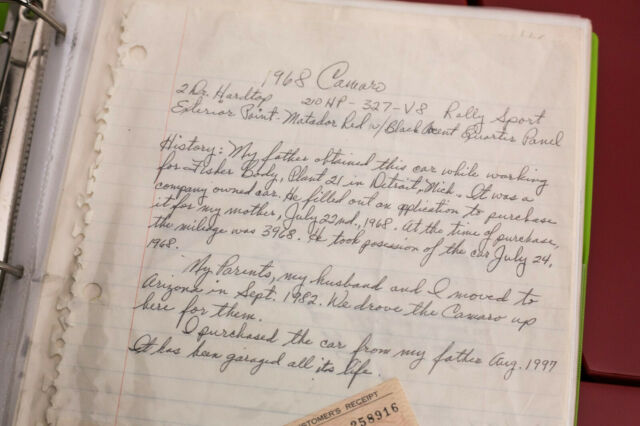 1968 Camaro
2 Dr. Hardtop 210 HP - 327 - V8 Rally Sport
Exterior Paint: Matador Red w/Black Accent Quarter Panel
History: My father obtained this car while working
for Fisher Body, Plant 21 in Detroit, Mich. It was a
company owned car. He filled out an application to purchase
it for my mother, July 22nd, 1968. At the time of purchase,
the mileage was 3968. He took posession of the car July 24,
1968.
My Parents, my husband and I moved to
Arizona in Sept. 1982. We drove the Camaro up
here for them.
I purchased the car from my father Aug. 1997
It has been garaged all its life.
CUSTOMER'S RECEIPT
258916